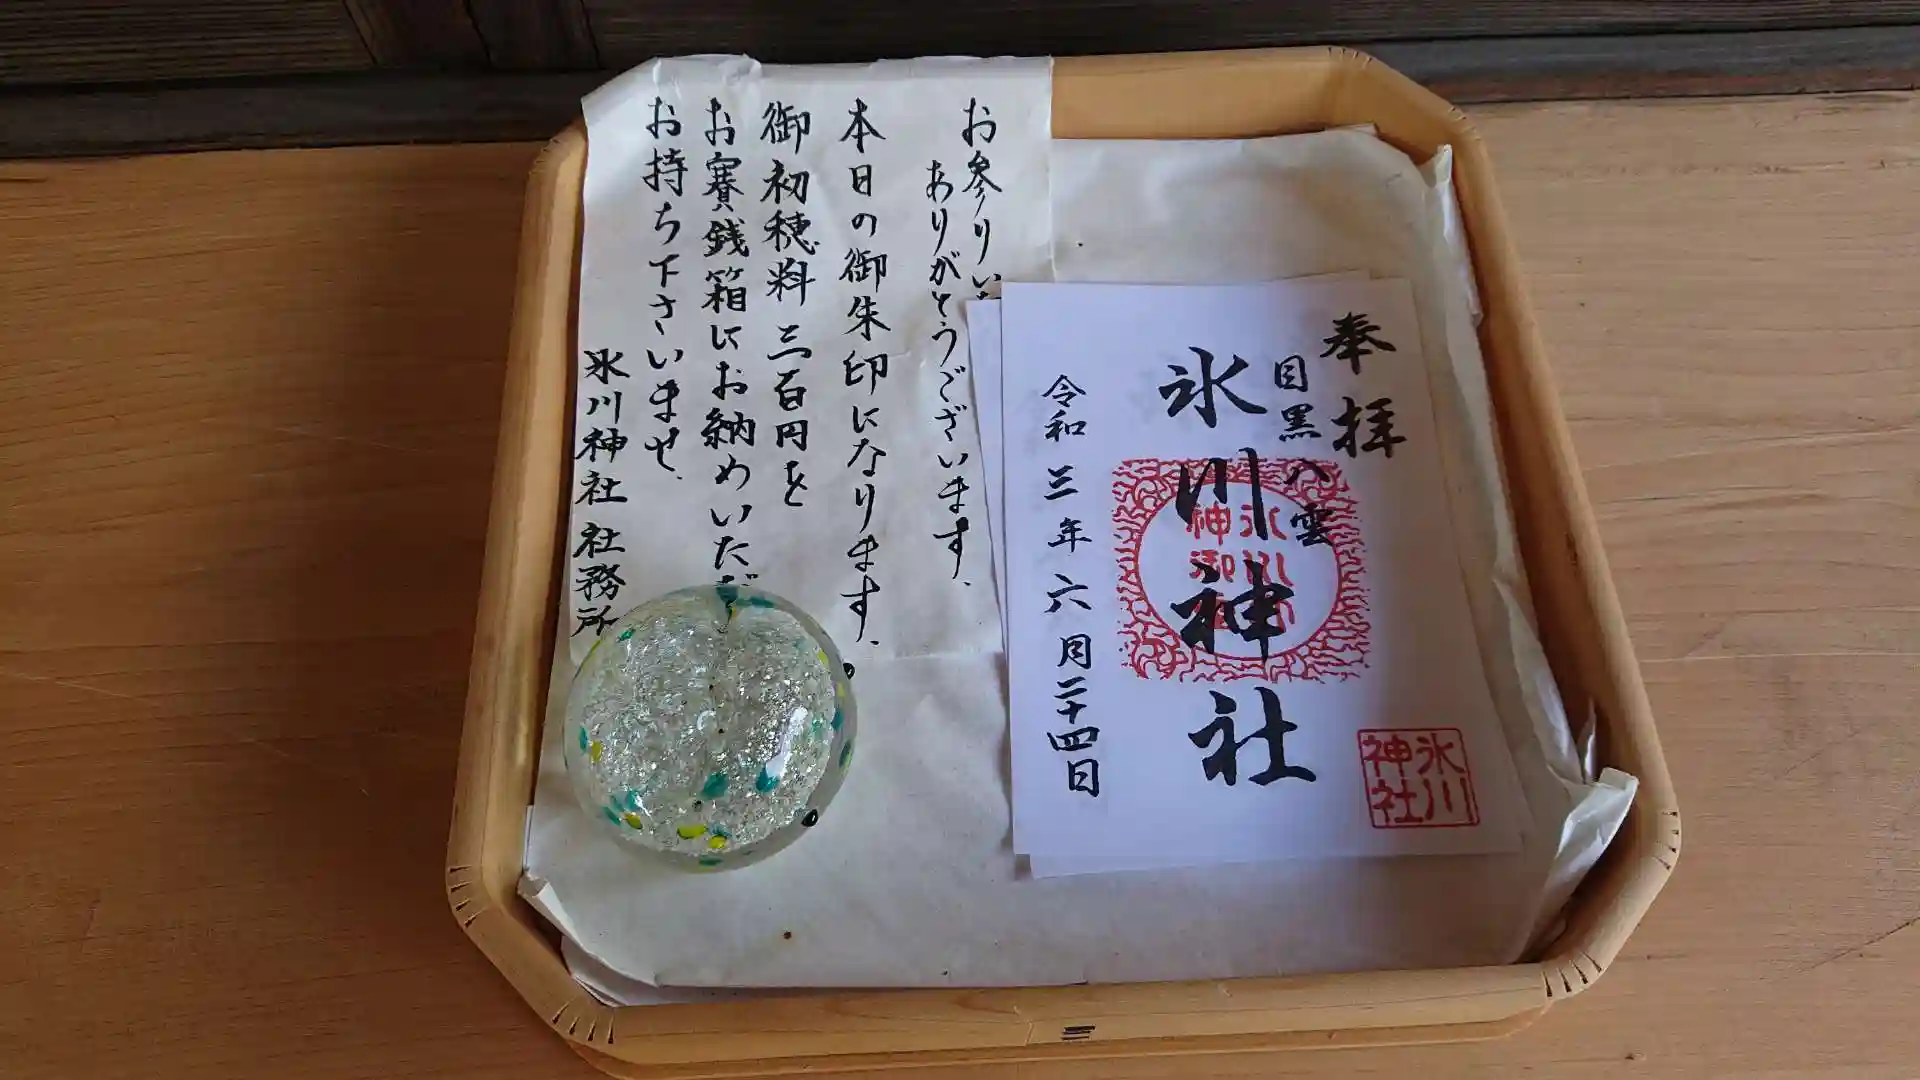 お参りい
ありがとうございます、
本日の御朱印になります、
御初穂料 三百円を
お賽銭箱にお納めいただ
お持ち下さいませ、
氷川神社 社務所
奉拝
目黒八雲
氷川神社
令和三年六月二十四日
氷川
神社